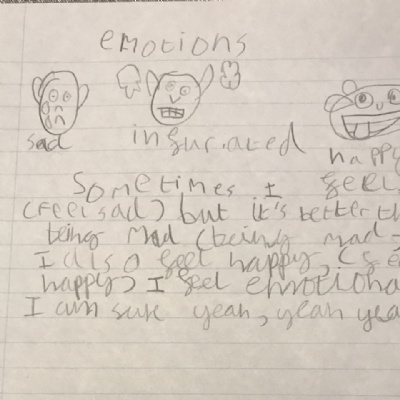 emotions
sad
infuriated
happy
Sometimes I feel
(Feel sad) but it's better th
being mad (being mad
I also feel happy, (
happy) I feel emotiona
I am sure yeah, yeah yea